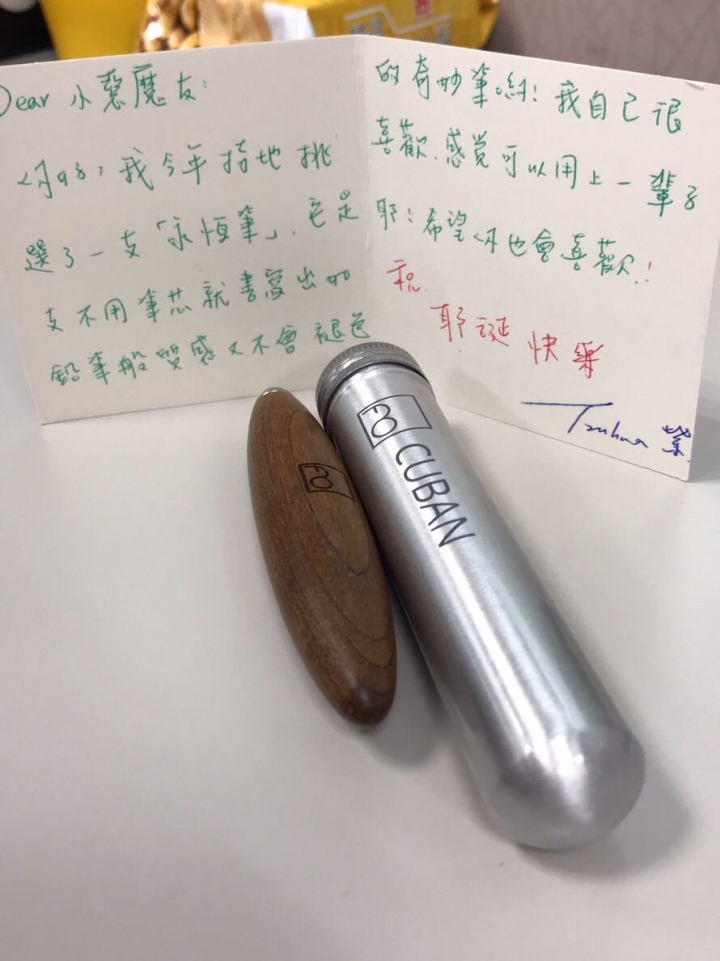 Dear 小惡魔友:
我今年特地挑
選了一支「永恆筆」，它是
支不用筆芯就書寫出如
鉛筆般質感又不會褪色
的奇妙筆喲! 我自己很
喜歡.感覚可以用上一輩子
耶! 希望你也會喜歡!
祝
耶誕快樂
CUBAN